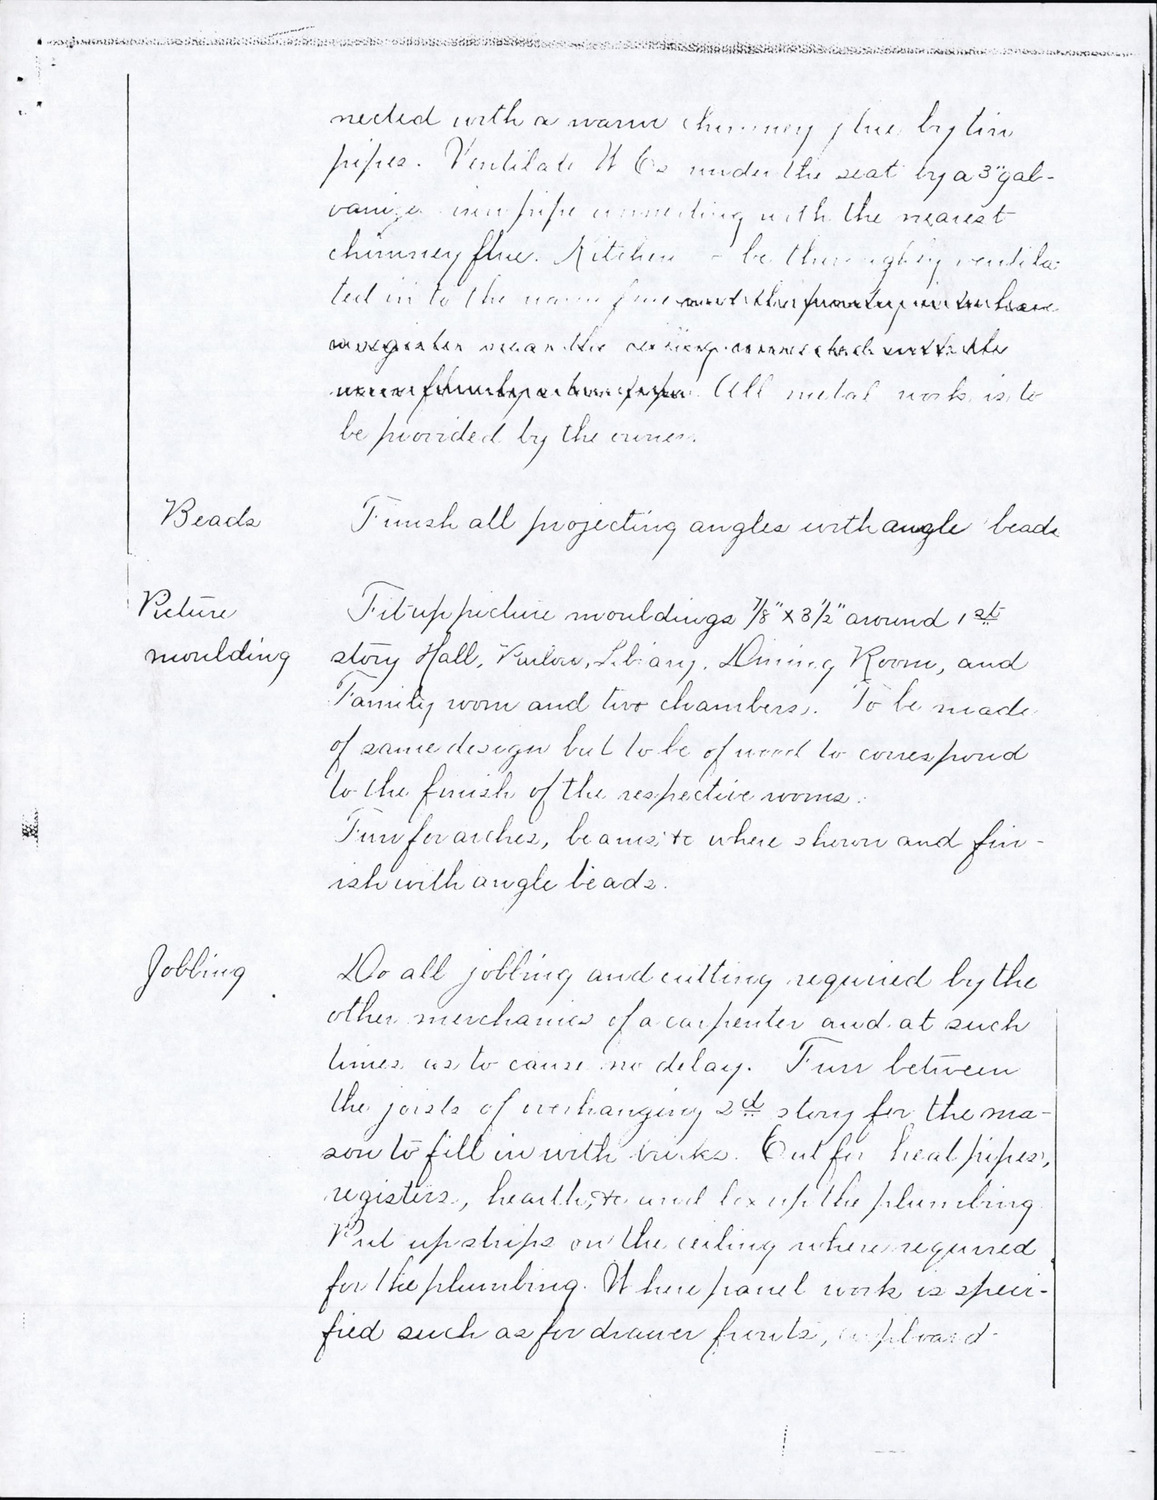 nected with a warm chimney flue by tin
pipes. Ventilate W Cs under the seat by a 3" gal-
vanized iron pipe connecting with the nearest
chimney flue. Kitchen - be thoroughly ventila-
ted in to the warm flue and the
register near the ceiling connected with the
All metal work is to
be provided by the owner.
Beads
Finish all projecting angles with angle beads
Picture
moulding
Fit up picture mouldings 7/8" x 3 1/2" around 1st
story Hall, Parlor, Library, Dining Room, and
Family room and two chambers. To be made
of same design but to be of wood to correspond
to the finish of the respective rooms.
Furr for arches, beams, &c where shown and fin-
ish with angle beads.
Jobbing
Do all jobbing and cutting required by the
other merchanics of a carpenter and at such
times as to cause no delay. Furr between
the joists of overhanging 2d story for the ma-
son to fill in with bricks. Cut for heat pipes,
registers, hearth, &c and box up the plumbing
Put up strips on the ceiling where required
for the plumbing. Where panel work is speci-
fied such as for drawer fronts, cupboard-